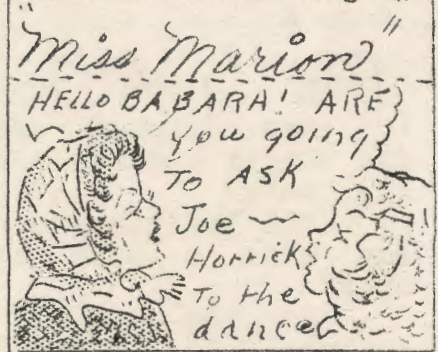 "Miss Marion"
HELLO BABARA! ARE
you going
TO ASK
Joe
Horrick
To the
dance